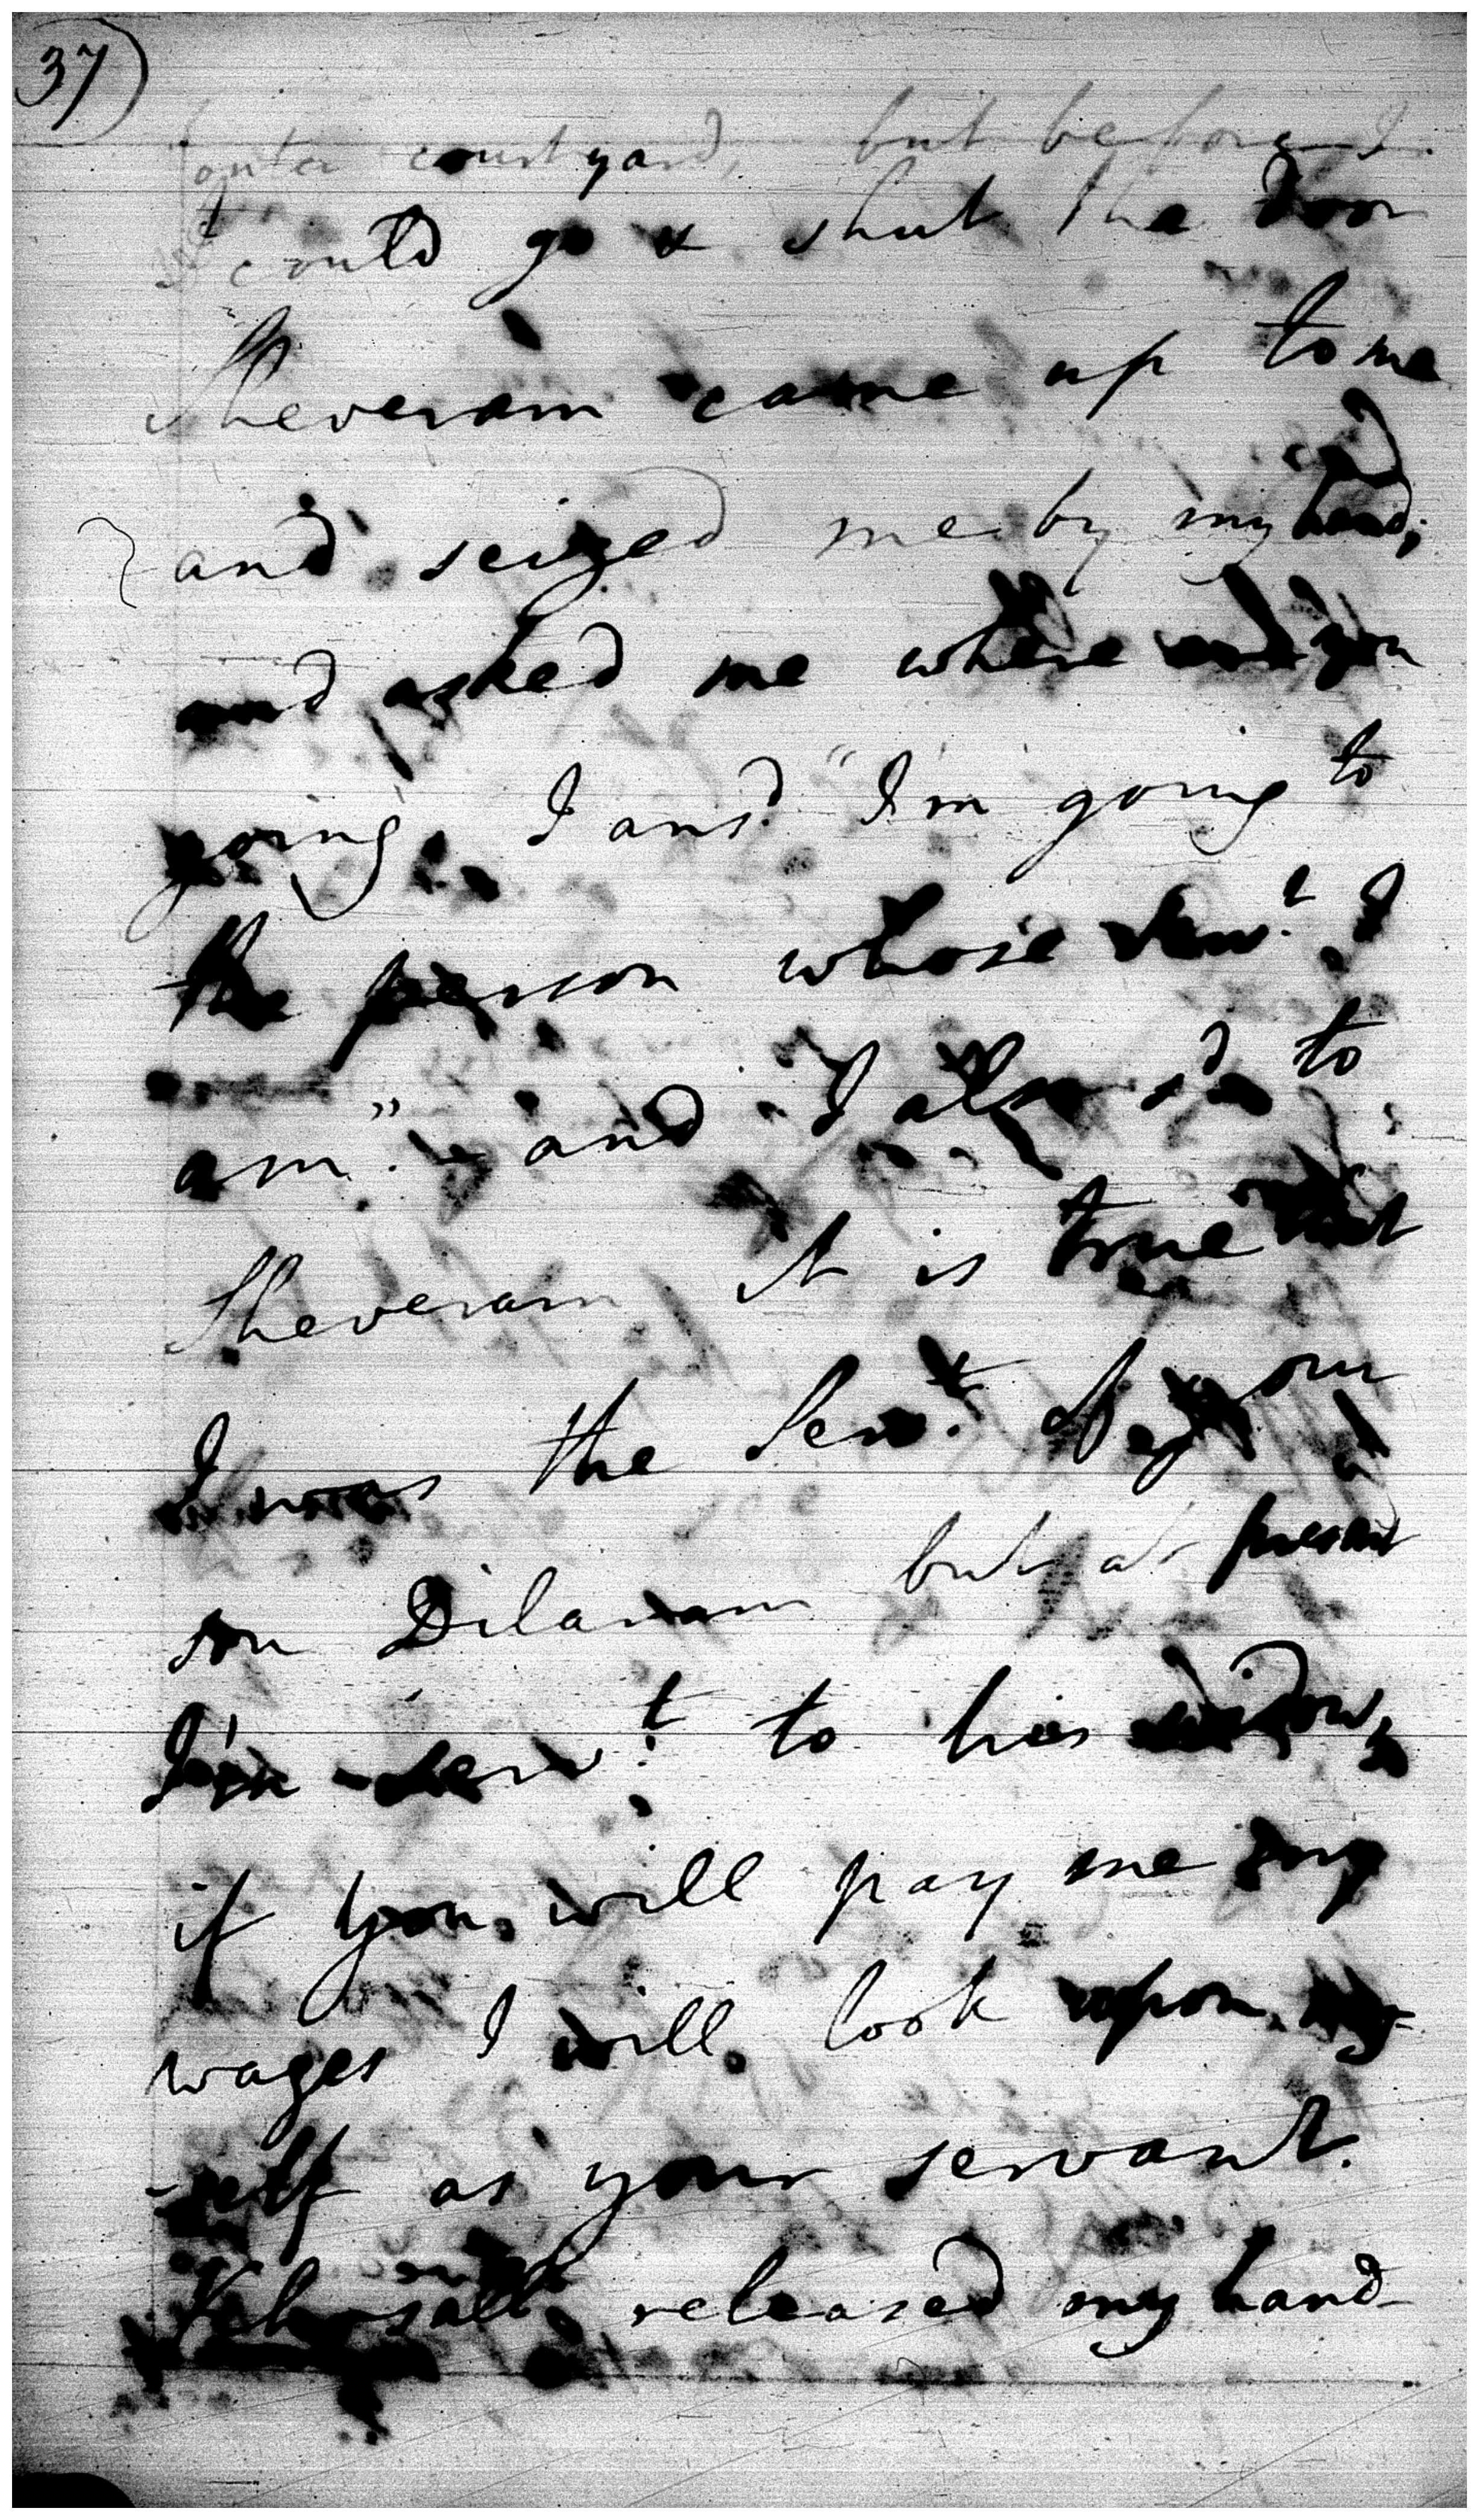 37)
outer courtyard, but before I
could go & shut the door
Sheveram came up to me
and seized me by my hand,
and asked me where are you
going, I ansd. "I'm going to
the person whose Servt. I
am." – and I also sd. to
Sheveram it is true that
I was the Servt. of your
son Dilaram but at present
I'm servt. to his widow,
if you will pay me my
wages I will look upon my-
-self as your servant.
released my hand